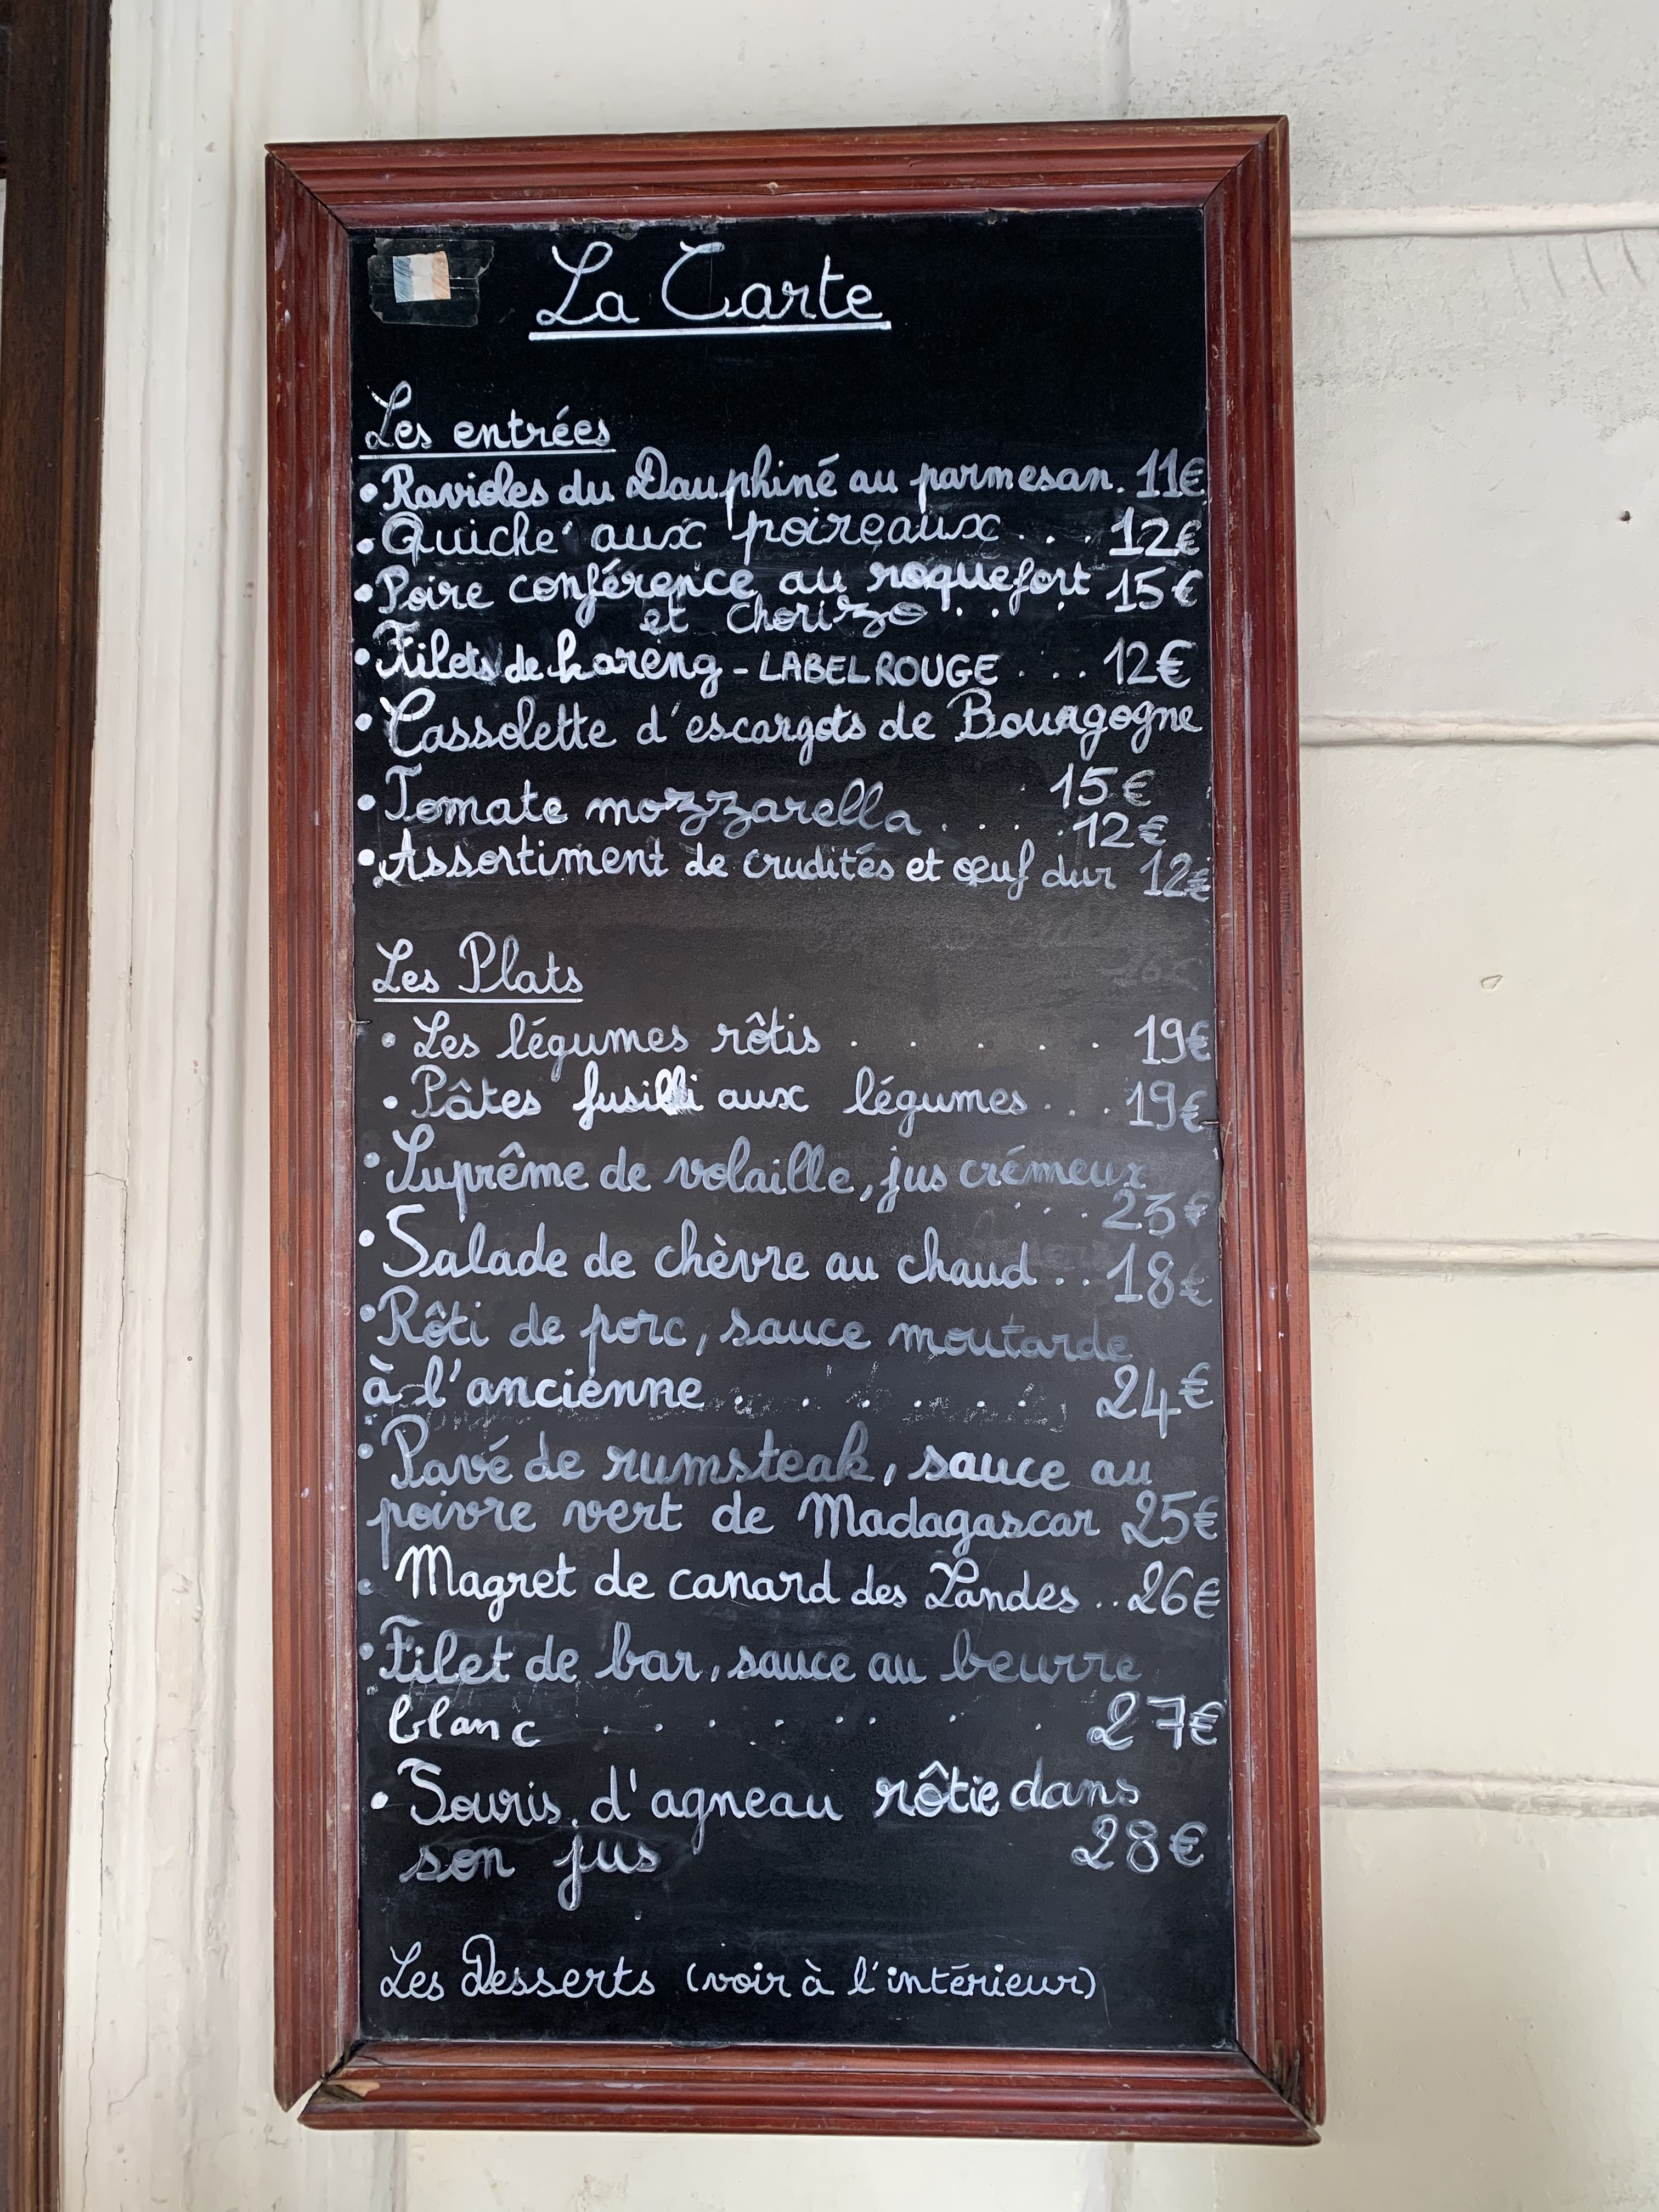 La Carte
Les entrées
• Ravioles du Dauphiné au parmesan. 11€
• Quiche aux poireaux . . . 12€
• Poire conférence au roquefort 15€
et chorizo . . . .
• Filets de hareng - LABEL ROUGE . . . 12€
• Cassolette d'escargots de Bourgogne
. 15€
• Tomate mozzarella . . . . 12€
• Assortiment de crudités et œuf dur 12€
Les Plats
• Les légumes rôtis . . . . . 19€
• Pâtes fusilli aux légumes . . . 19€
• Suprême de volaille, jus crémeux
. . . 23€
• Salade de chèvre au chaud . . 18€
• Rôti de porc, sauce moutarde
à l'ancienne . . . . . . 24€
• Pavé de rumsteak, sauce au
poivre vert de Madagascar 25€
• Magret de canard des Landes . . 26€
• Filet de bar, sauce au beurre
blanc . . . . . . . . 27€
• Souris d'agneau rôtie dans
son jus 28€
Les Desserts (voir à l'intérieur)